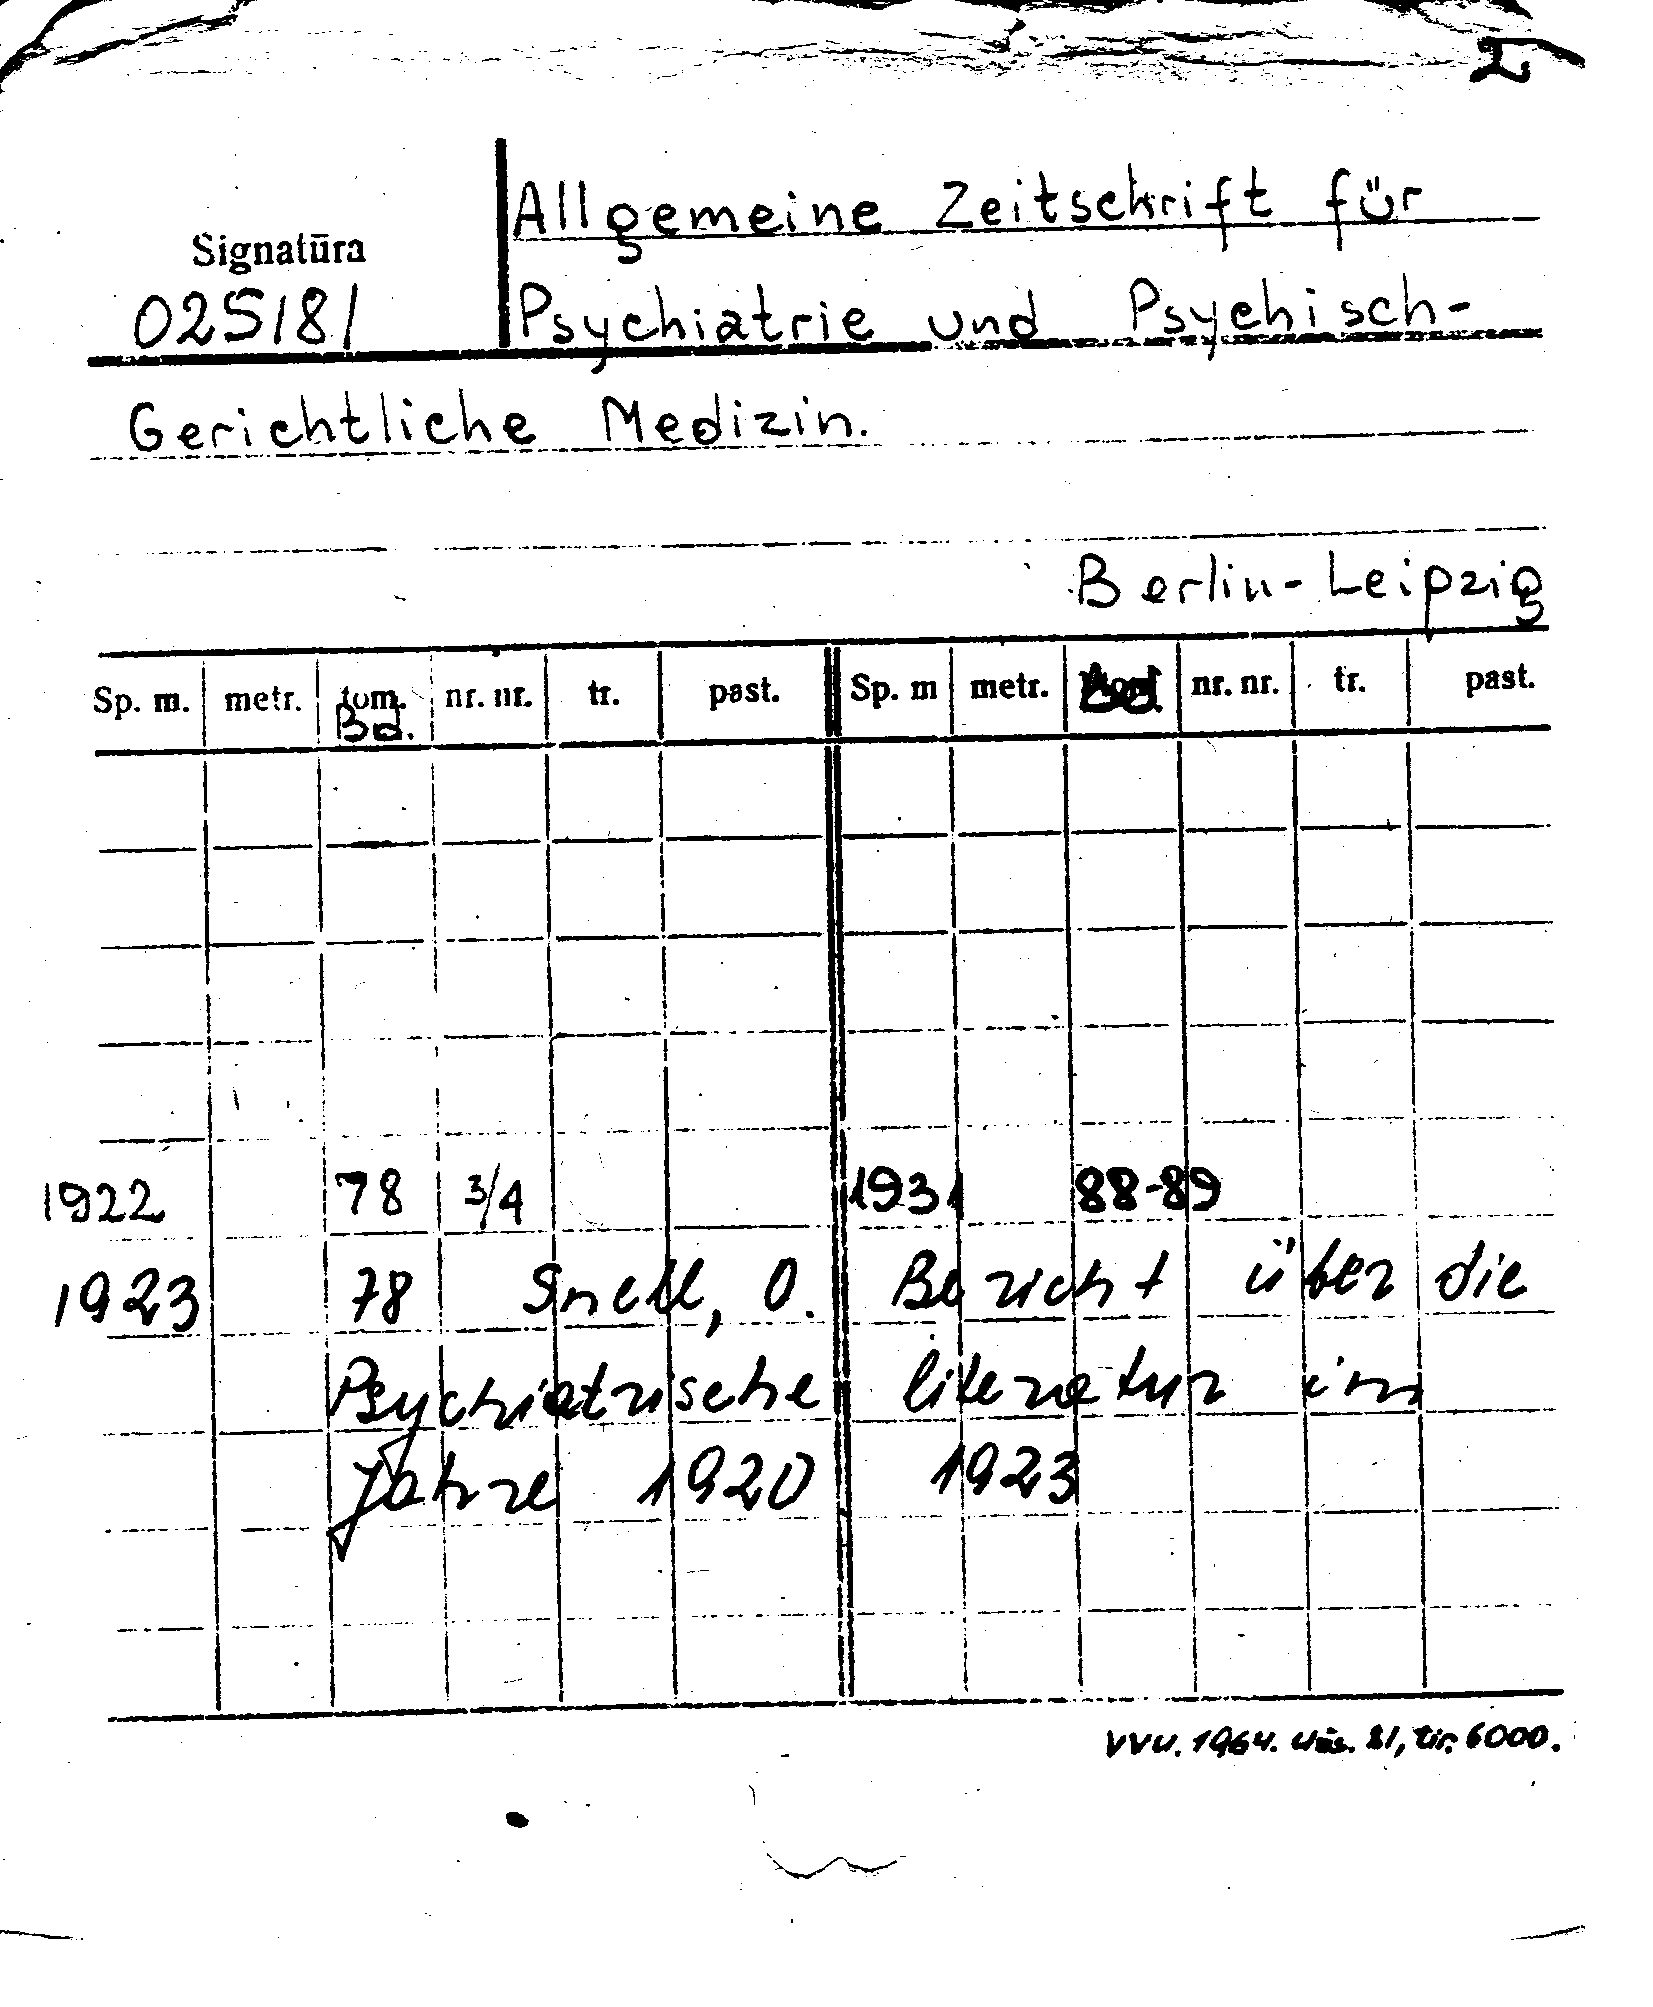 2
Allgemeine Zeitschrift für
Signatūra
025181
Psychiatrie und Psychisch-
Gerichtliche Medizin.
Berlin-Leipzig
Sp. m. metr. tom. nr. nr. tr. past. Sp. m metr. Bd. nr. nr. tr. past.
Bd.
1922 78 3/4 1931 88-89
1923 78 Snell, O. Bericht über die
Psychiatrische literatur im
Jahre 1920 1923
VVU. 1964. Užs. 81, tir. 6000.